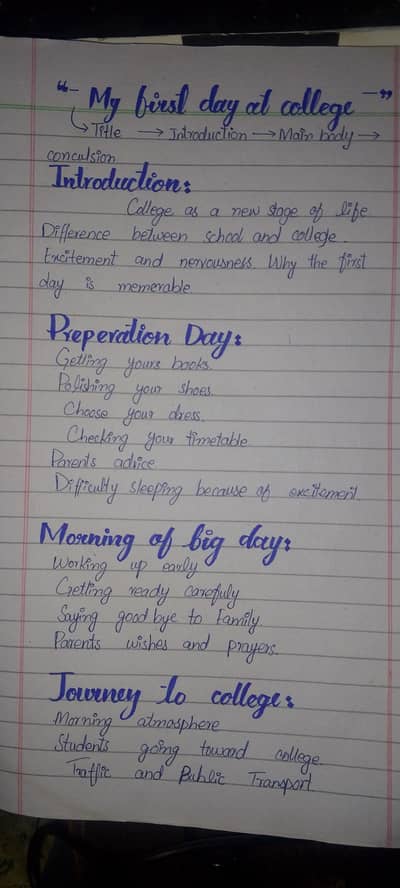 "- My first day at college -"
↳ Title → Introduction → Main body →
conculsion
Introduction:
College as a new stage of life
Difference between school and college.
Excitement and nervousness Why the first
day is memerable
Preperation Day:
Getting yours books.
Polishing your shoes.
Choose your dress.
Checking your timetable
Parents advice
Difficulty sleeping because of excitement.
Morning of big day:
Working up early
Getting ready carefuly
Saying good bye to family.
Parents wishes and prayers.
Journey to college:
Morning atmosphere
Students going toward college.
Traffic and Public Transport.